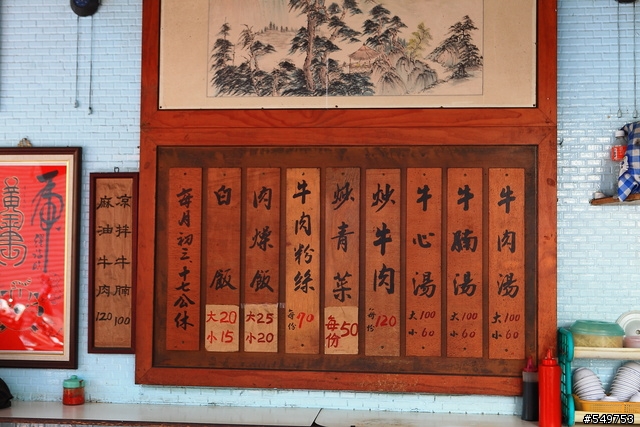 牛肉湯 大100 小60
牛腩湯 大100 小60
牛心湯 大100 小60
炒牛肉 每份120
炒青菜 每份50
牛肉粉絲 每份90
肉燥飯 大25 小20
白飯 大20 小15
每月初三、十七公休
涼拌牛腩 100
麻油牛肉 120
#549753